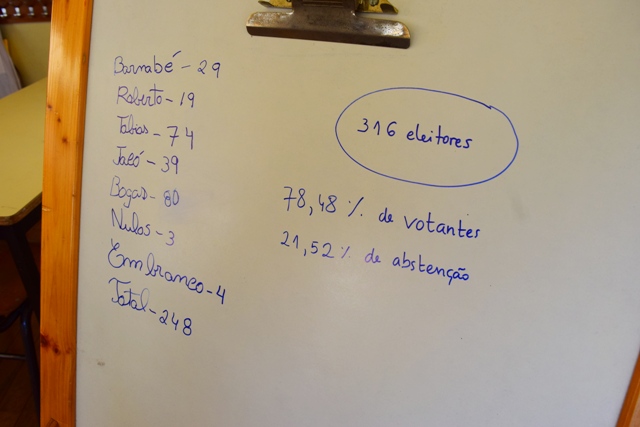 Barnabé - 29
Roberto - 19
Tobias - 74
Jacó - 39
Bogas - 80
Nulos - 3
Em branco - 4
Total - 248
316 eleitores
78,48 % de votantes
21,52 % de abstenção